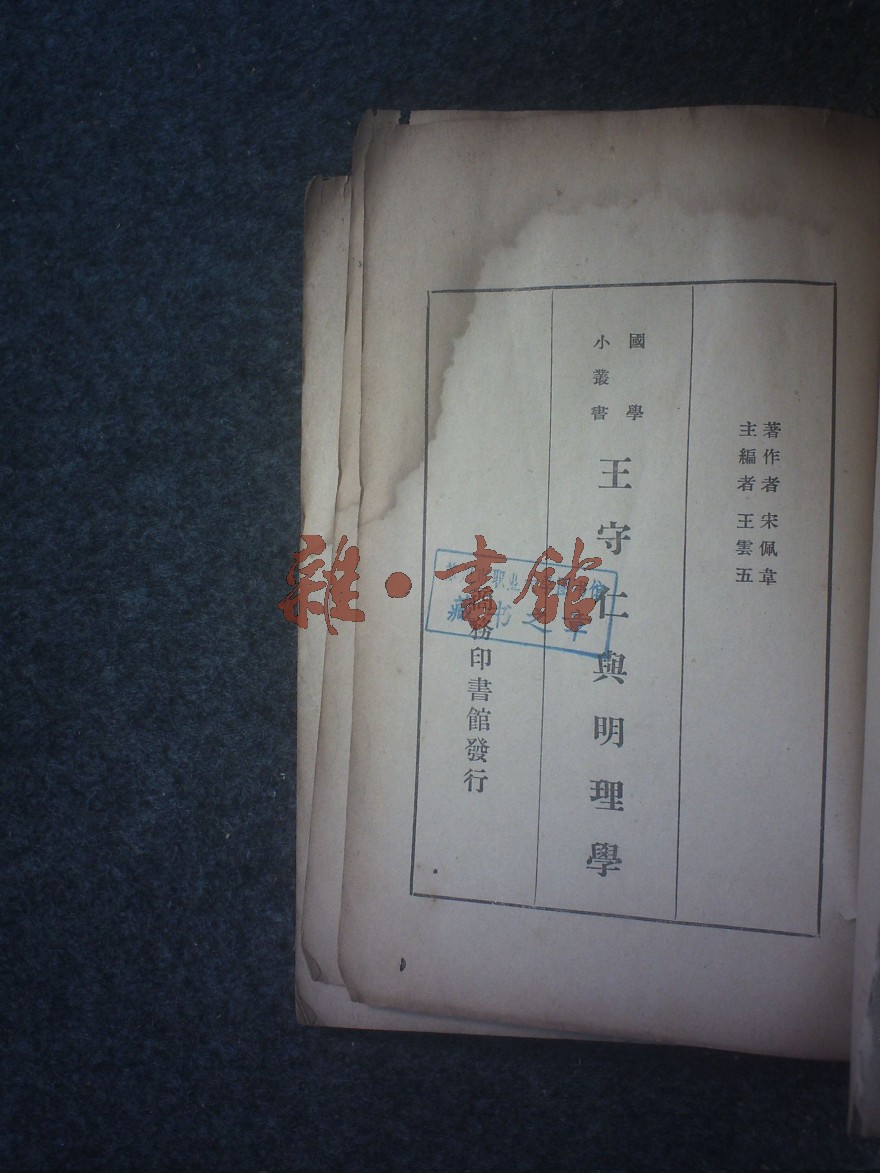 著作者 宋佩韋
主編者 王雲五
國學
小叢書
王守仁與明理學
務印書館發行
藏书之章
雜·書館